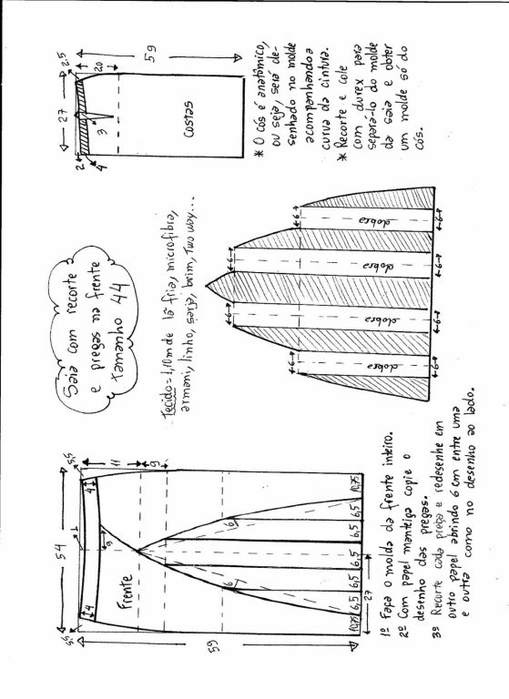 54
3,5
1
3,5
4
4
11
9
9
Frente
59
6
6
10,75
6,5
6,5
6,5
6,5
6,5
10,75
27
1º Faça o molde da frente inteiro.
2º Com papel manteiga copie o
desenho das pregas.
3º Recorte cada prega e redesenhe em
outro papel abrindo 6 cm entre uma
e outra como no desenho ao lado.
Saia com recorte
e pregas na frente
tamanho 44
Tecido = 1,10m de lã fria, microfibra,
armani, linho, sarja, brim, two way...
6
6
6
6
dobra
dobra
dobra
dobra
6
6
6
6
27
2,5
2
4
3
20
59
costas
* O cós é anatômico,
ou seja, será de-
senhado no molde
acompanhando a
curva da cintura.
* Recorte e cole
com durex para
separá-lo do molde
da saia e obter
um molde só do
cós.